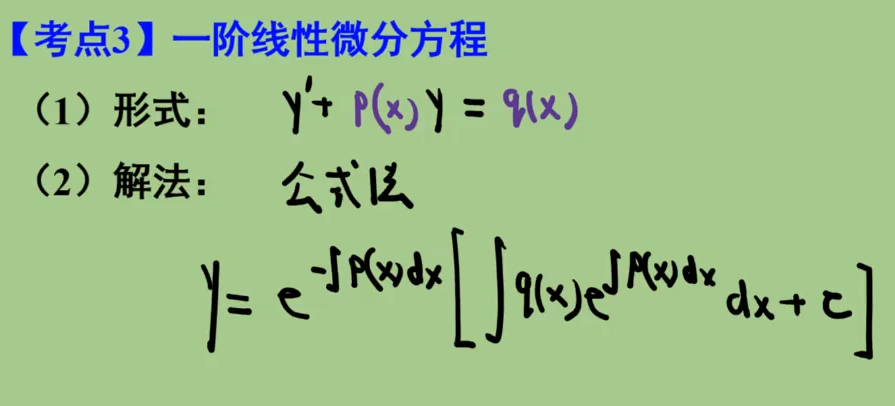 【考点3】一阶线性微分方程
（1）形式： y′+ p(x) y = q(x)
（2）解法： 公式法
y = e^{-∫p(x)dx} [ ∫q(x)e^{∫p(x)dx} dx + c ]